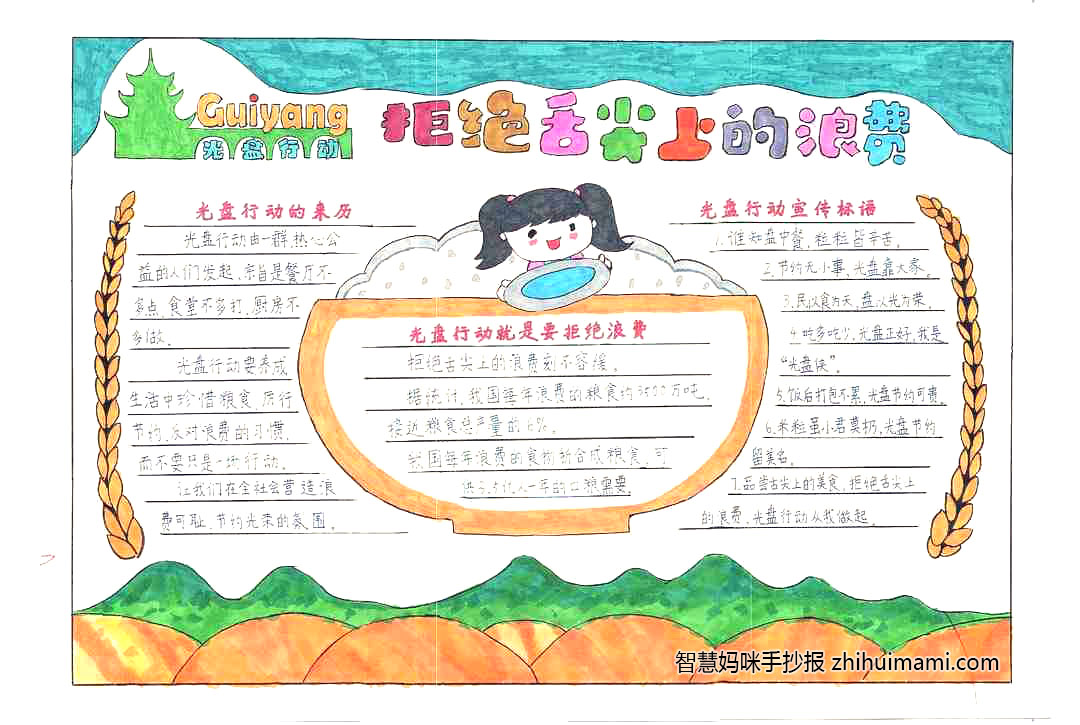 Guiyang
光盘行动
拒绝舌尖上的浪费
光盘行动的来历
光盘行动由一群热心公
益的人们发起,宗旨是餐厅不
多点,食堂不多打,厨房不
多做。
光盘行动要养成
生活中珍惜粮食,厉行
节约,反对浪费的习惯,
而不要只是一场行动。
让我们在全社会营造浪
费可耻、节约光荣的氛围。
光盘行动就是要拒绝浪费
拒绝舌尖上的浪费刻不容缓。
据统计,我国每年浪费的粮食约3500万吨,
接近粮食总产量的6%。
我国每年浪费的食物折合成粮食,可
供3.5亿人一年的口粮需要。
光盘行动宣传标语
1.谁知盘中餐,粒粒皆辛苦。
2.节约无小事,光盘靠大家。
3.民以食为天,盘以光为荣。
4.吃多吃少,光盘正好,我是
“光盘侠”。
5.饭后打包不累,光盘节约可贵。
6.米粒虽小君莫扔,光盘节约
留美名。
7.品尝舌尖上的美食,拒绝舌尖上
的浪费,光盘行动从我做起。
智慧妈咪手抄报 zhihuimami.com